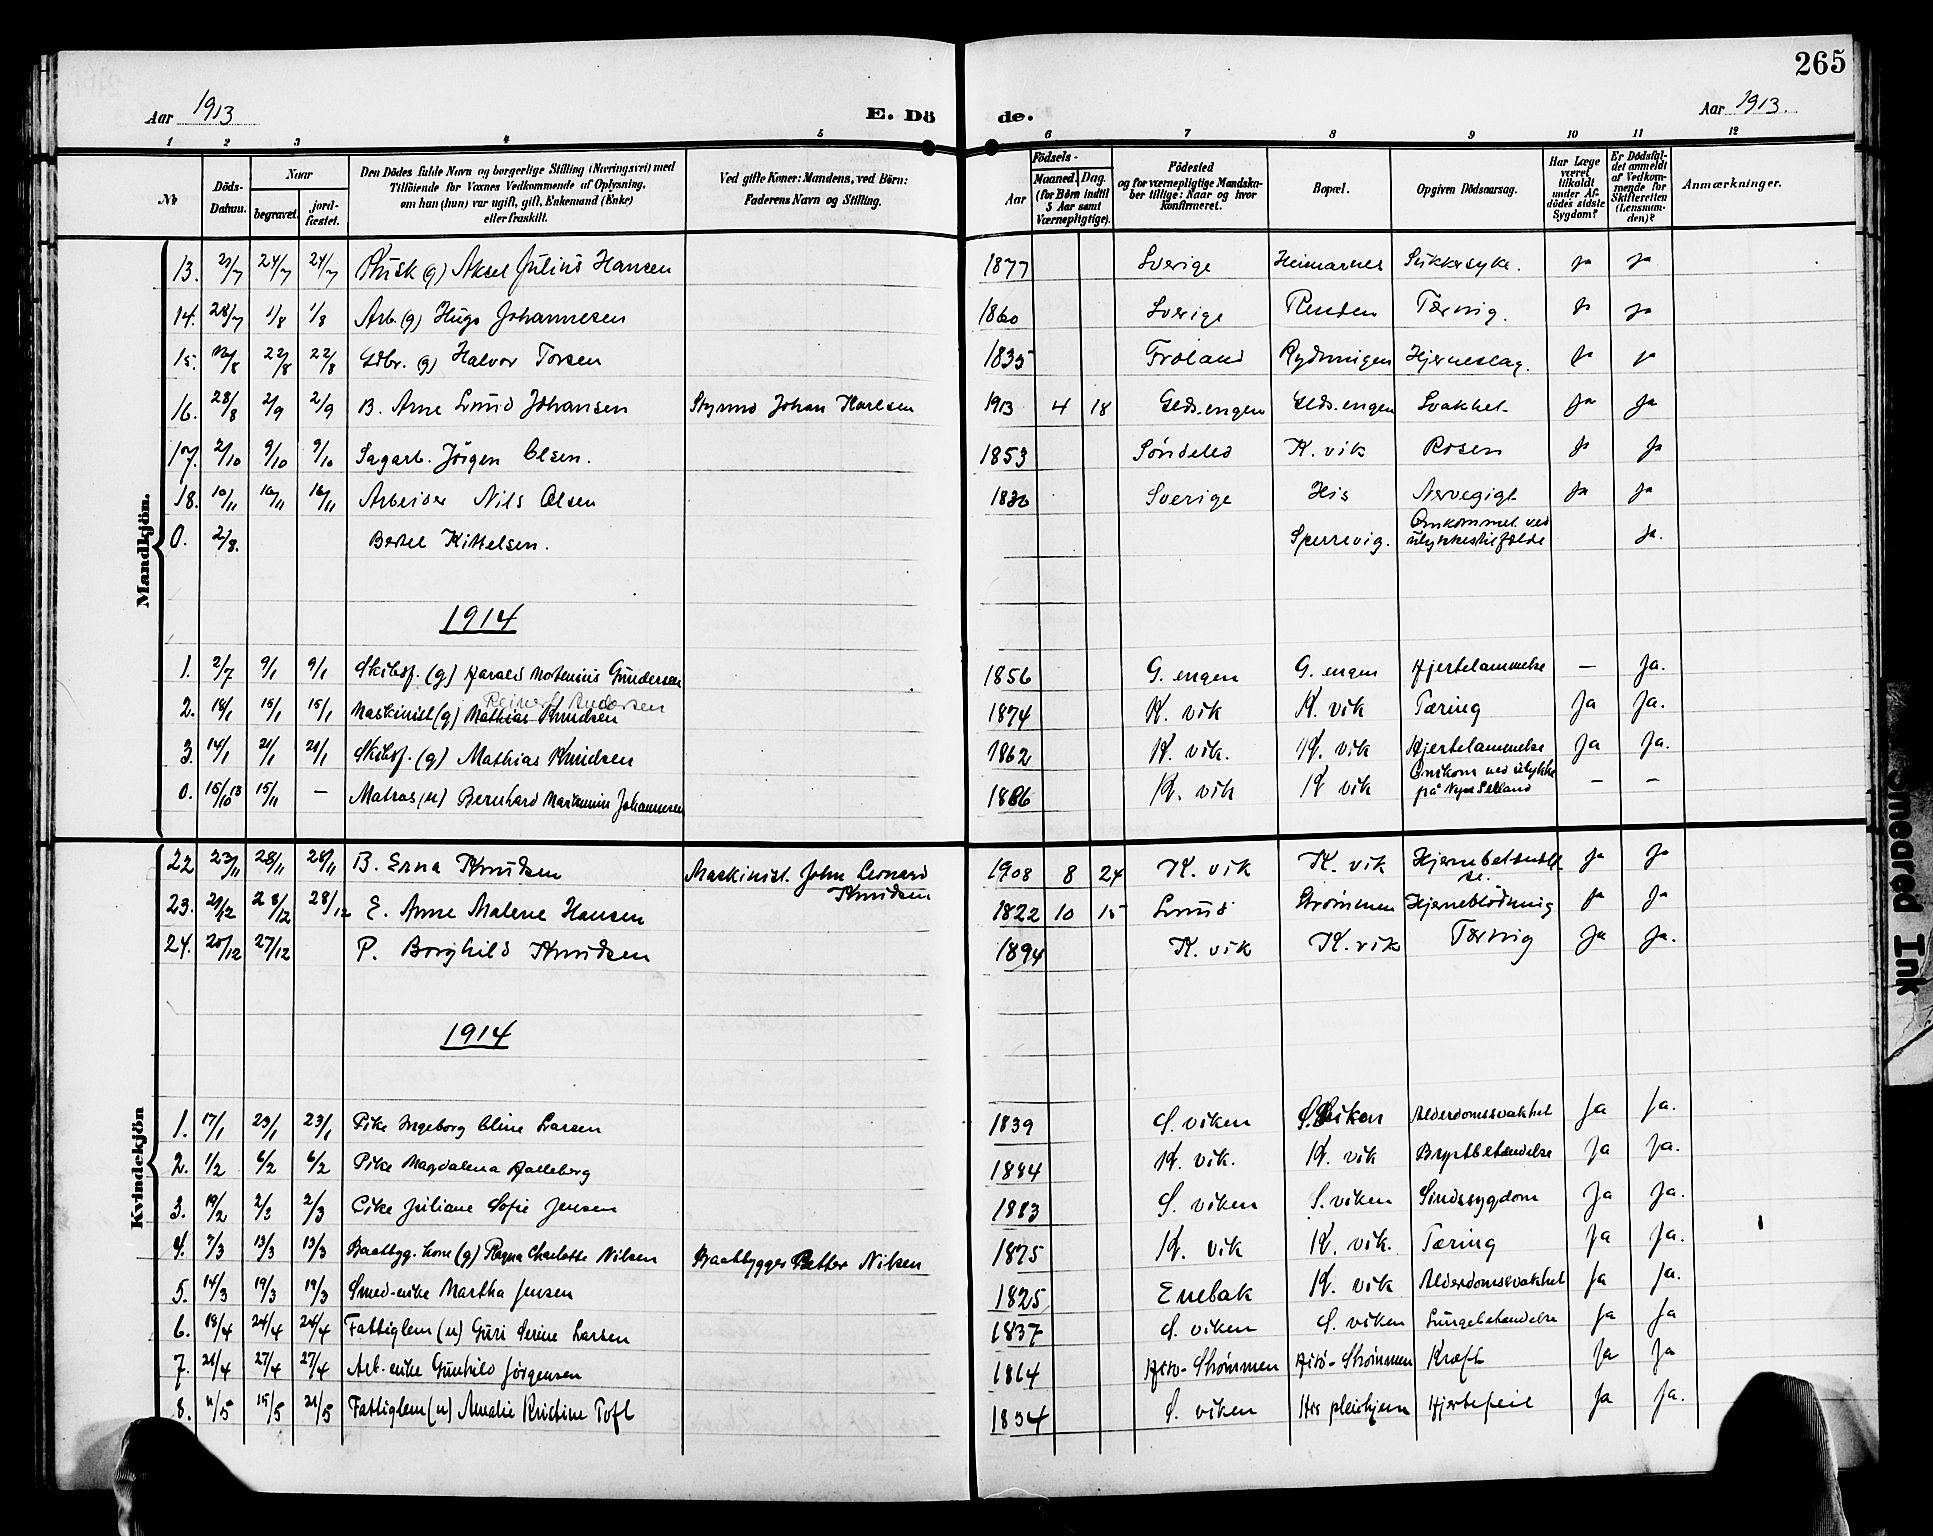 265
Aar 1913
E. Dö
de.
Aar 1913.
1 2 3 4 5 6 7 8 9 10 11 12
No
Döds-Datum.
Naar
begravet.
jord-fæstet.
Den Dödes fulde Navn og borgerlige Stilling (Næringsvei) med
Tilföiende for Voxnes Vedkommende af Oplysning,
om han (hun) var ugift, gift, Enkemand (Enke)
eller fraskilt.
Ved gifte Koner: Mandens, ved Börn:
Faderens Navn og Stilling.
Födsels-
Aar
Maaned. Dag.
(for Börn indtil
5 Aar samt
Værnepligtige).
Födested
og for værnepligtige Mandska-
ber tillige: Naar og hvor
konfirmeret.
Bopæl.
Opgiven Dödsaarsag.
Har Læge
været
tilkaldt
under Af-
dödes sidste
Sygdom?
Er Dödsfal-
det anmeldt
af Vedkom-
mende for
Skifteretten
(Lensman-
den)?
Anmærkninger.
Mandkjön.
13. 24/7 24/7 (g) Aksel Julius Hansen 1877 Sverige Sukkersyke. ja ja
14. 28/7 1/8 1/8 Arb. (g) Hugo Johannesen 1860 Sverige Renden Tæring. ja ja
15. 22/8 22/8 Gdbr. (g) Halvor Torsen 1835 Froland Rydningen Hjerneslag. ja ja
16. 28/8 2/9 2/9 B. Arne Lund Johansen Styrmd Johan Karlsen 1913 4 18 Glds.engen Glds.engen Svakhet ja ja
17. 2/10 9/10 9/10 Sagarb. Jörgen Olsen. 1853 Söndeled K. vik Rosen ja ja
18. 10/11 16/11 16/11 Arbeider Nils Olsen 1830 Sverige His Nervegigt ja ja
0. 2/8. Bertel Kittelsen. Sperrevig. Omkommet ved
ulykkestilfælde ja.
1914
1. 2/7 9/1 9/1 Skibsf. (g) Harald Motensius Gundersen 1856 G. engen G. engen Hjertelammelse — Ja.
Reinert Andersen
2. 15/1 15/1 Maskinist (g) Mathias Knudsen 1874 K. vik K. vik Tæring Ja Ja.
3. 14/1 21/1 21/1 Skibsf. (g) Mathias Knudsen 1862 K. vik. K. vik Hjertelammelse Ja Ja.
0. 15/11 — Matros (u) Bernhard Johannesen K. vik K vik Omkom ved ulykke
på — —
Kvindekjön
22 23/11 28/11 28/11 B. Erna Knudsen Maskinist. John Leonard
Knudsen 1908 8 24 K. vik K. vik ja ja
23. 21/12 28/12 28/12 E. Anne Malene Hansen 1822 10 15 Lund Strömmen Hjerneblödning ja ja
24. 20/12 27/12 P. Borghild Knudsen 1894 K. vik K. vik Tæring Ja Ja.
1914
1. 17/1 23/1 23/1 Pike Ingeborg Oline Larsen 1839 S. viken S. viken Alderdomssvakhet Ja Ja.
2. 1/2 6/2 6/2 Pike Magdalena 1884 K. vik. K. vik Brystbetændelse Ja Ja.
3. 19/2 2/3 2/3 Pike Juliane Sofie Jensen 1883 S. viken S. viken Sindssygdom Ja Ja.
4. 7/3 13/3 13/3 Baatbyg. kone (g) Ragna Charlotte Nilsen Baatbygger Petter Nilsen 1875 K. vik K. vik. Tæring Ja Ja.
5. 14/3 19/3 19/3 Smed-enke Martha Jensen 1825 Enebak K. vik Alderdomssvakhet Ja Ja.
6. 18/4 24/4 24/4 Fattiglem (u) Guri Serine Larsen 1837 S. viken S. viken Lungebetændelse Ja Ja
7. 21/4 27/4 27/4 Arb.-enke Gunhild Jörgensen 1864 Hisö-Strömmen Hisö-Strömmen Kræft Ja Ja
8. 11/5 15/5 21/5 Fattiglem (u) Amelie Kristine Toft 1834 S. viken His pleiehjem Hjertefeil Ja Ja.
Smeared Ink